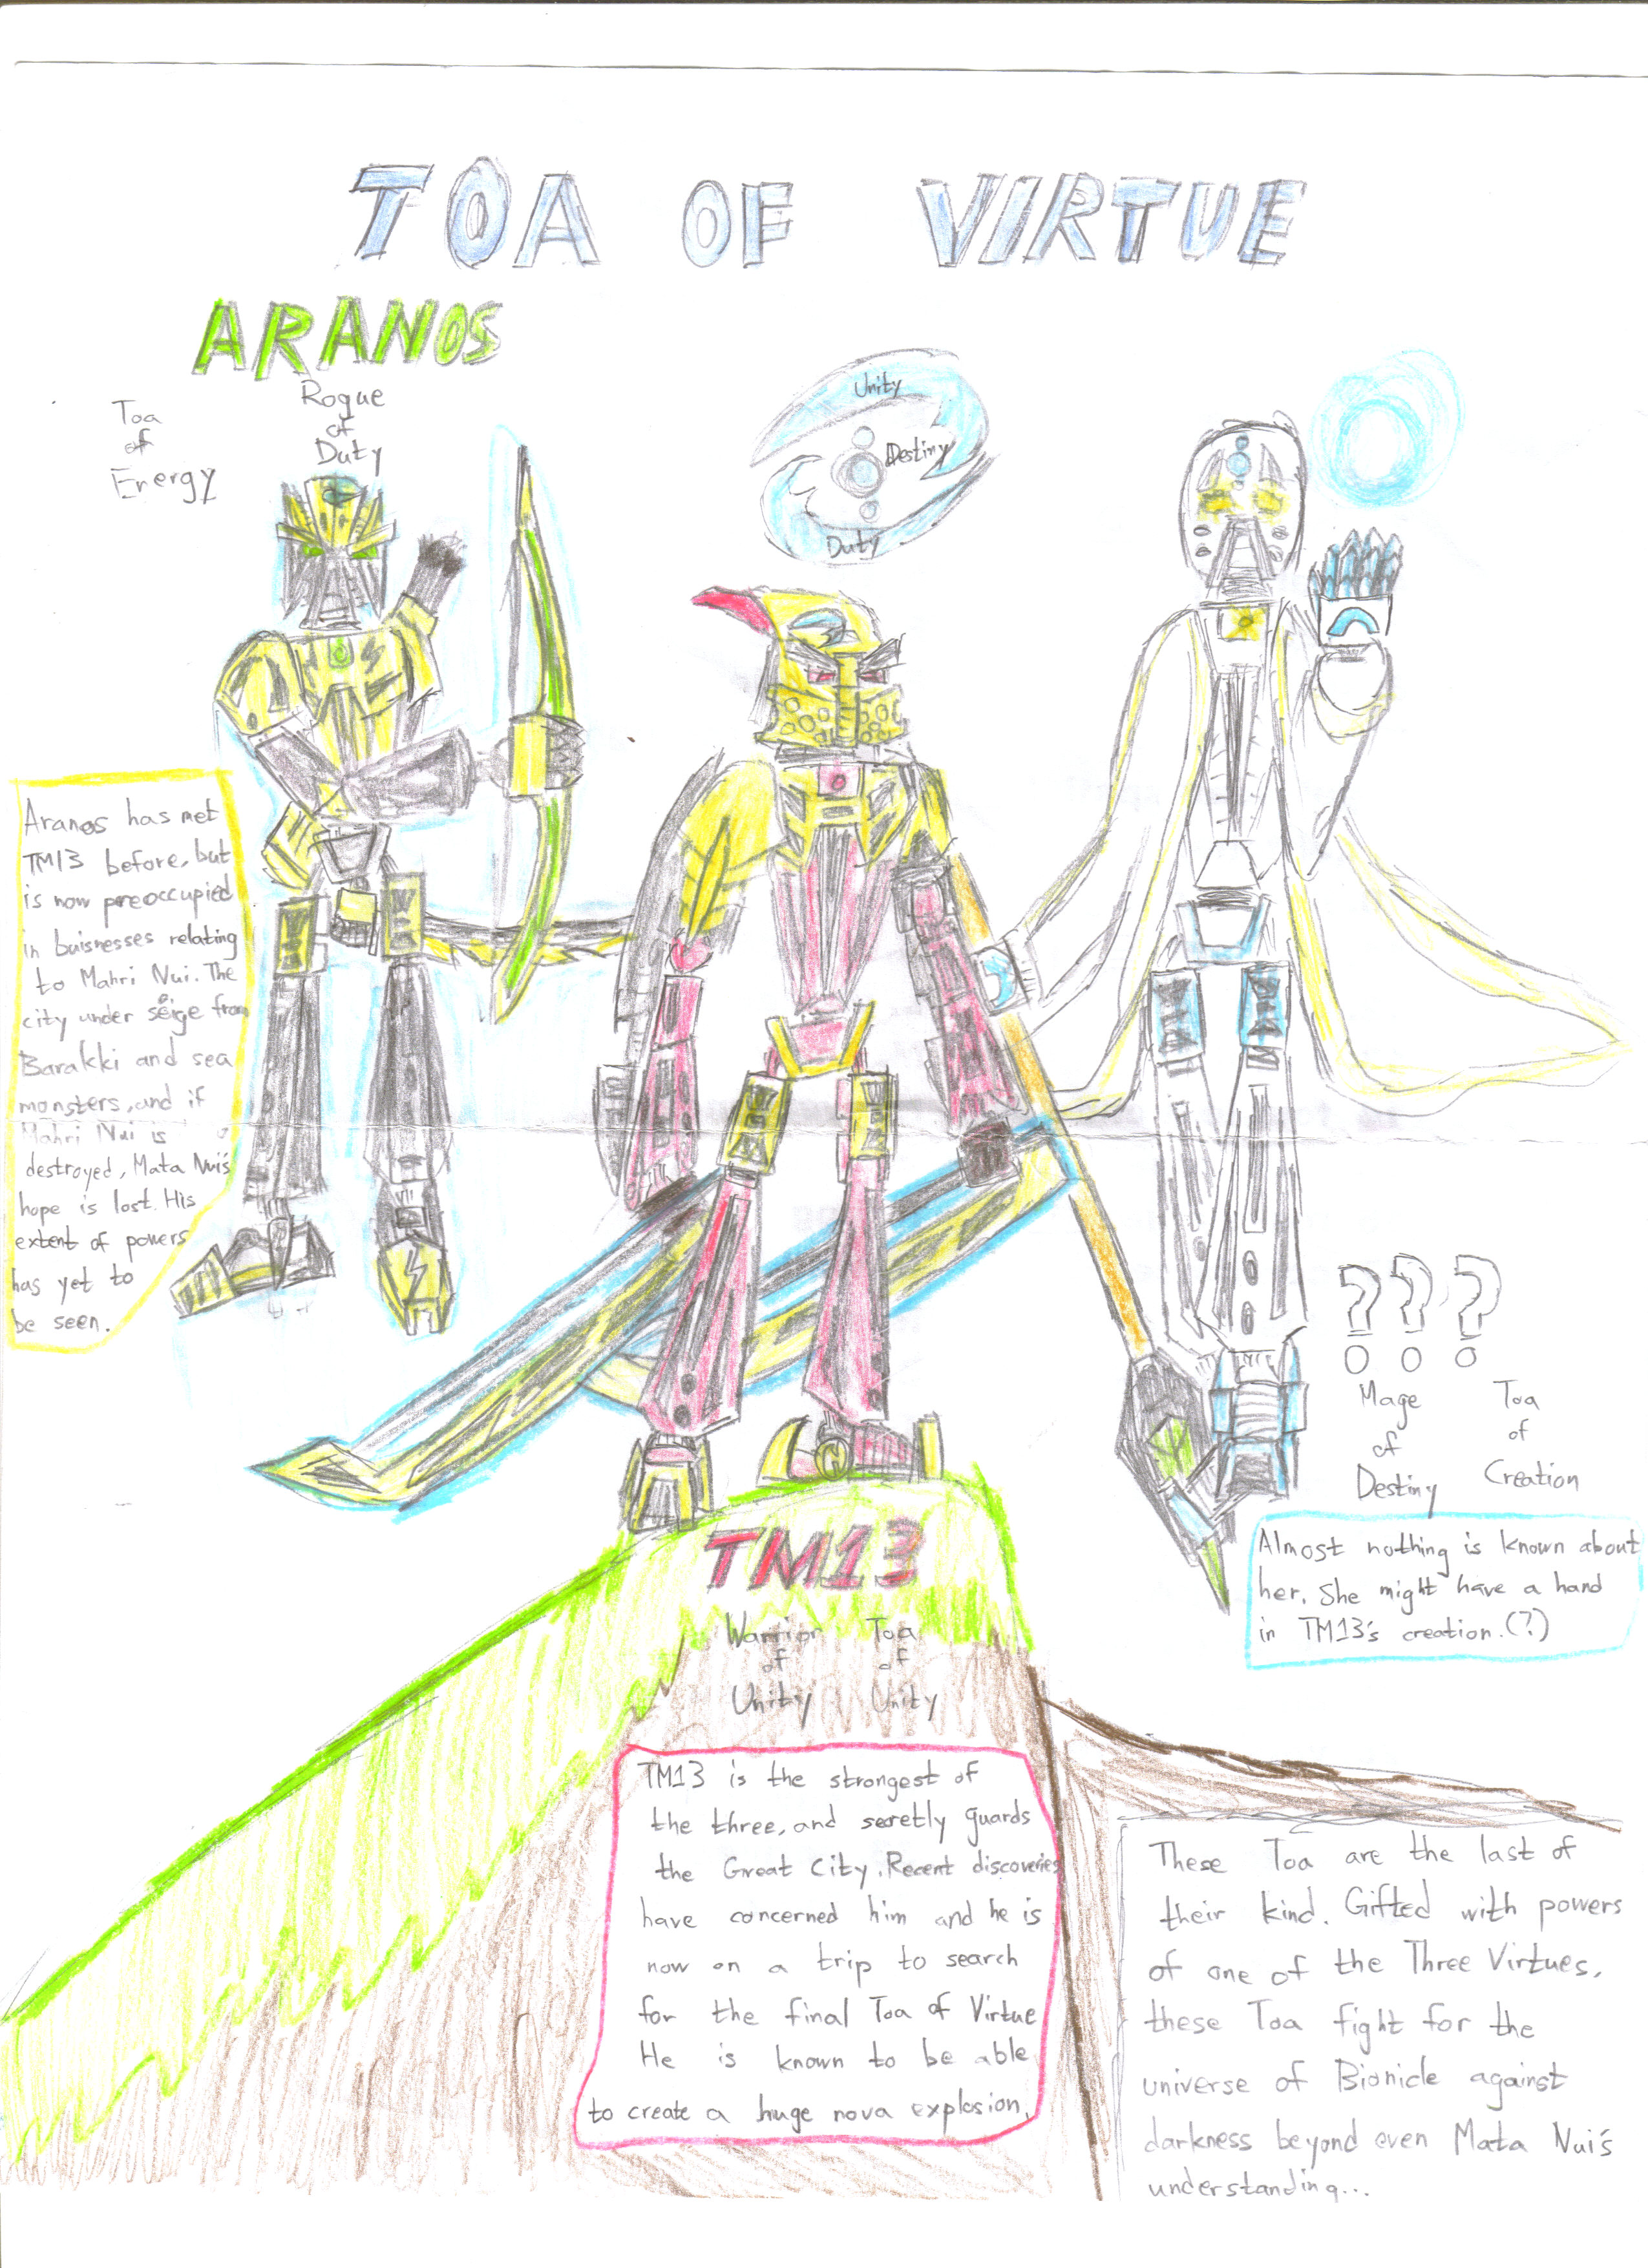 TOA OF VIRTUE
ARANOS
Toa
of
Energy
Rogue
of
Duty
Unity
Destiny
Duty
Aranos has met
TM13 before, but
is now preoccupied
in buisnesses relating
to Mahri Nui. The
city under seige from
Barakki and sea
monsters, and if
Mahri Nui is
destroyed, Mata Nui's
hope is lost. His
extent of powers
has yet to
be seen.
???
Mage
of
Destiny
Toa
of
Creation
Almost nothing is known about
her. She might have a hand
in TM13's creation. (?)
TM13
Warrior
of
Unity
Toa
of
Unity
TM13 is the strongest of
the three, and secretly guards
the Great City. Recent discoveries
have concerned him and he is
now on a trip to search
for the final Toa of Virtue
He is known to be able
to create a huge nova explosion.
These Toa are the last of
their kind. Gifted with powers
of one of the Three Virtues,
these Toa fight for the
universe of Bionicle against
darkness beyond even Mata Nui's
understanding...